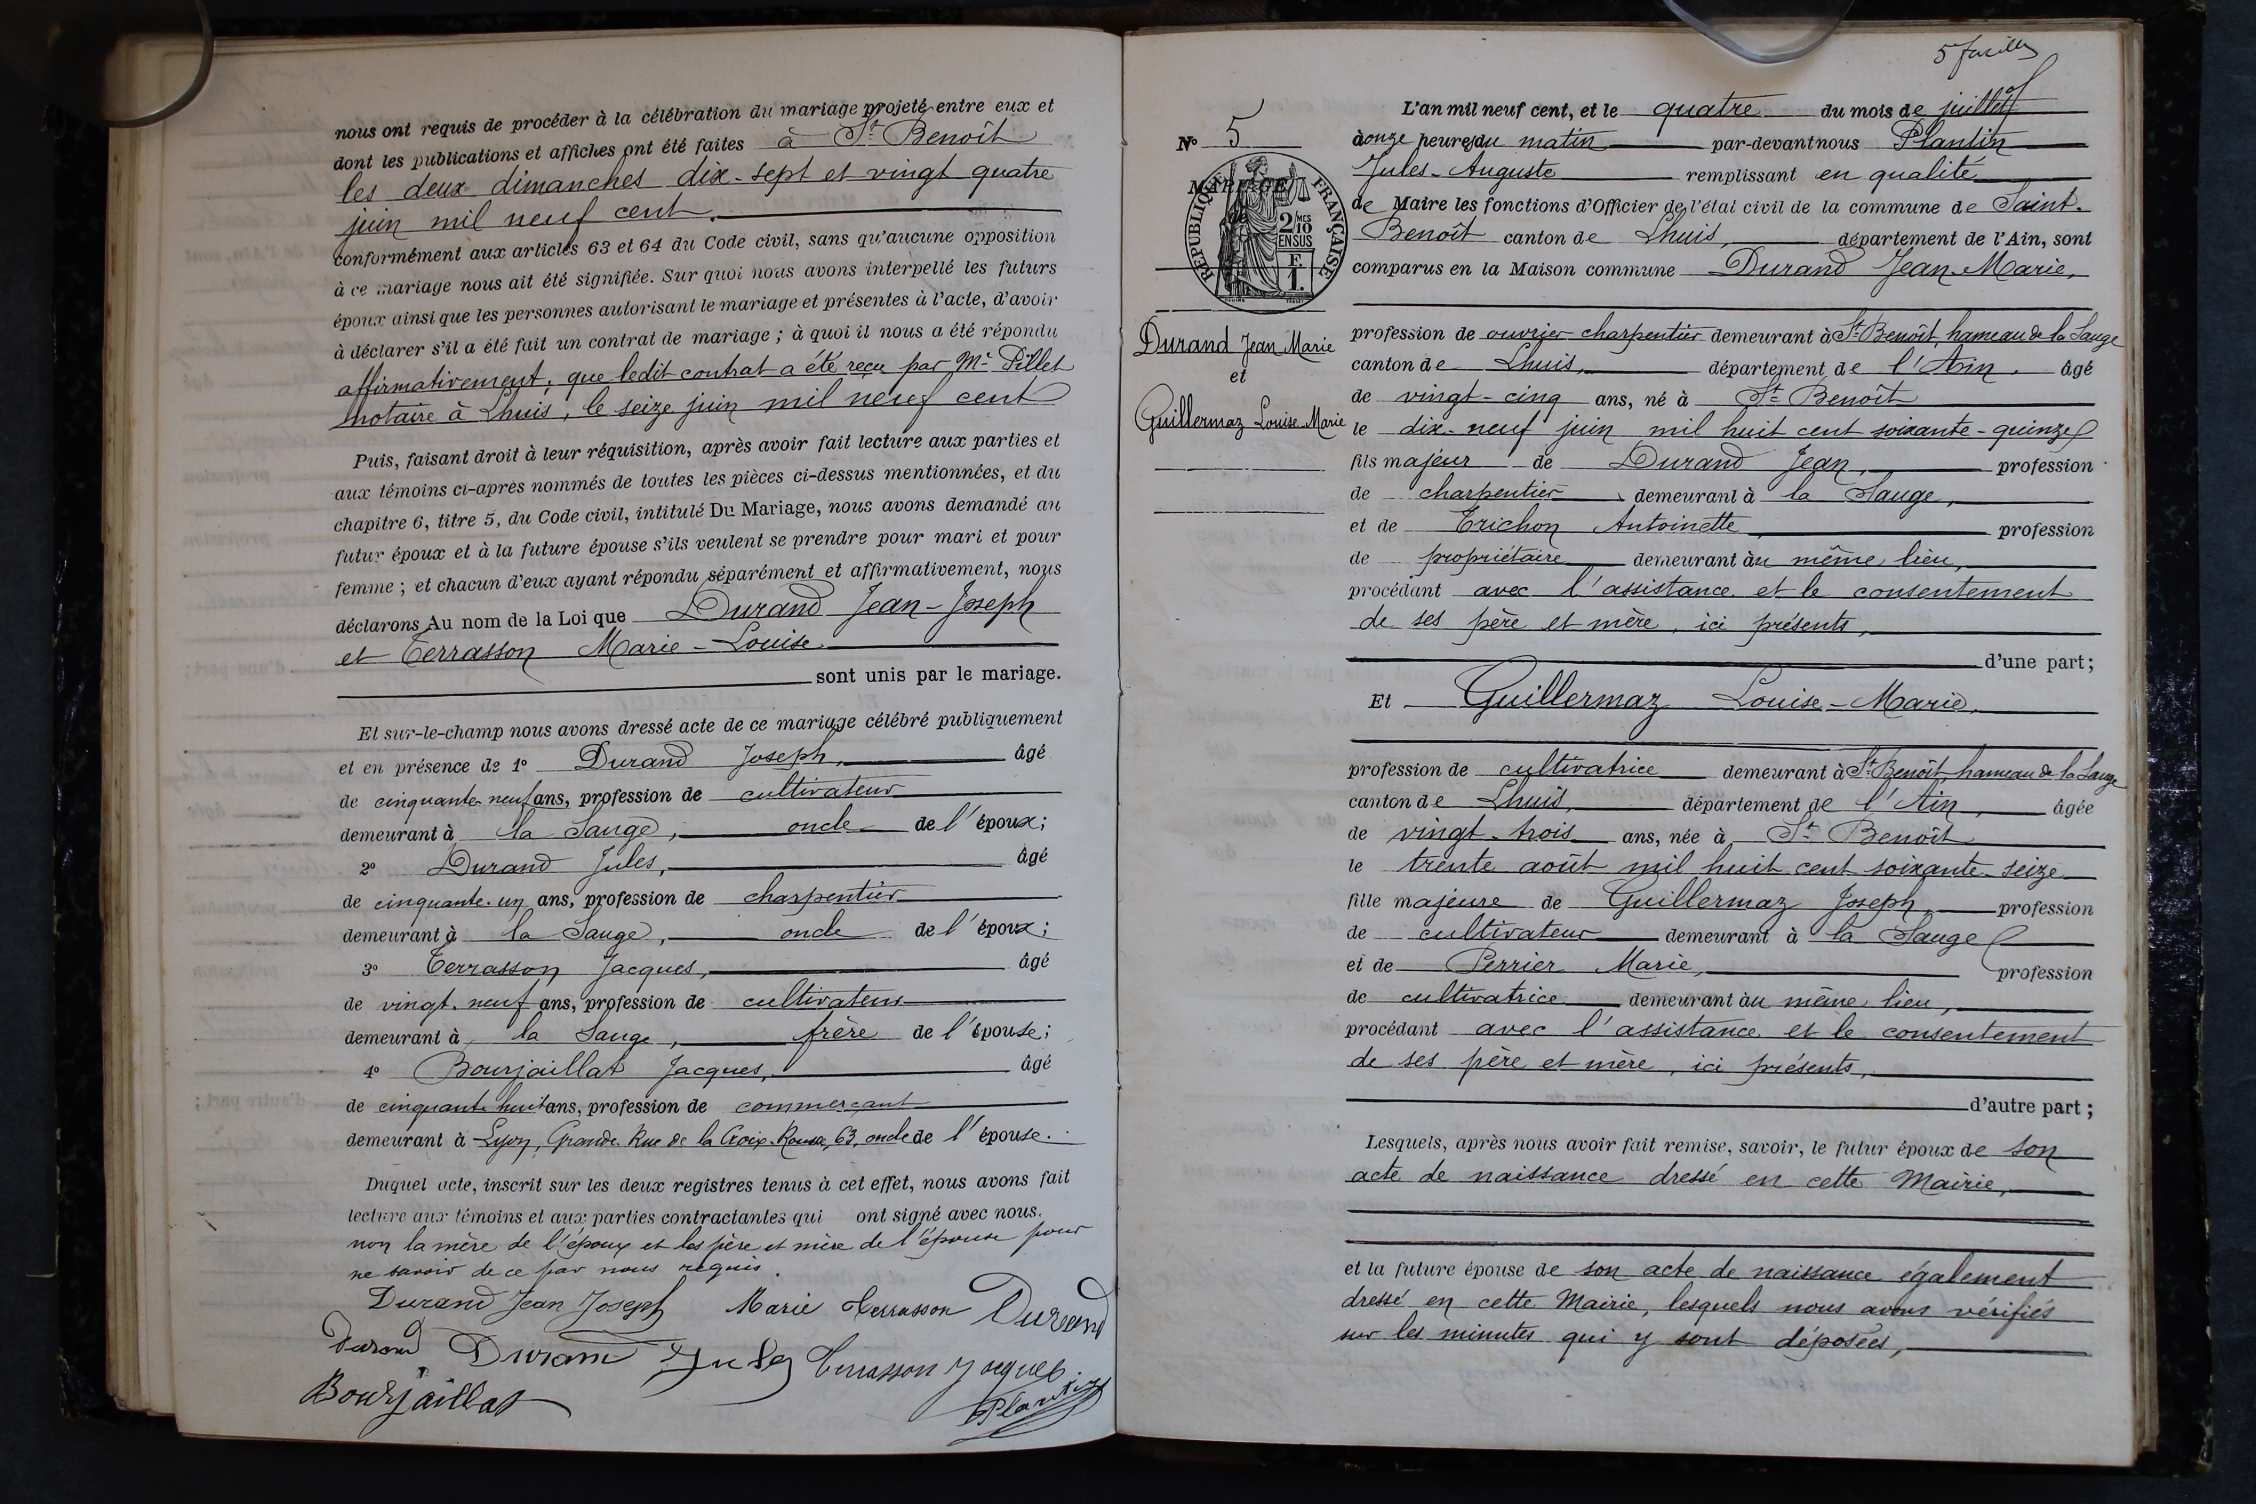 nous ont requis de procéder à la célébration du mariage projeté entre eux et
dont les publications et affiches ont été faites à St Benoît
les deux dimanches dix-sept et vingt quatre
juin mil neuf cent.
conformément aux articles 63 et 64 du Code civil, sans qu'aucune opposition
à ce mariage nous ait été signifiée. Sur quoi nous avons interpellé les futurs
époux ainsi que les personnes autorisant le mariage et présentes à l'acte, d'avoir
à déclarer s'il a été fait un contrat de mariage ; à quoi il nous a été répondu
affirmativement, que ledit contrat a été reçu par Me Pillet
notaire à Lhuis, le seize juin mil neuf cent
Puis, faisant droit à leur réquisition, après avoir fait lecture aux parties et
aux témoins ci-après nommés de toutes les pièces ci-dessus mentionnées, et du
chapitre 6, titre 5, du Code civil, intitulé Du Mariage, nous avons demandé au
futur époux et à la future épouse s'ils veulent se prendre pour mari et pour
femme ; et chacun d'eux ayant répondu séparément et affirmativement, nous
déclarons Au nom de la Loi que Durand Jean-Joseph
et Terrasson Marie-Louise.
sont unis par le mariage.
Et sur-le-champ nous avons dressé acte de ce mariage célébré publiquement
et en présence de 1º Durand Joseph, âgé
de cinquante neuf ans, profession de cultivateur
demeurant à la Sauge, oncle de l'époux;
2º Durand Jules, âgé
de cinquante-un ans, profession de charpentier
demeurant à la Sauge, oncle de l'époux;
3º Terrasson Jacques, âgé
de vingt-neuf ans, profession de cultivateur
demeurant à la Sauge, frère de l'épouse;
4º Bourjaillat Jacques, âgé
de cinquante huit ans, profession de commerçant
demeurant à Lyon, Grande Rue de la Croix-Rousse, 63, oncle de l'épouse.
Duquel acte, inscrit sur les deux registres tenus à cet effet, nous avons fait
lecture aux témoins et aux parties contractantes qui ont signé avec nous.
non la mère de l'époux et les père et mère de l'épouse pour
ne savoir de ce par nous requis.
Durand Jean Joseph Marie Terrasson Durand
Durand Durand Jules Terrasson Jacques
Bourjaillat Plantin
5 Juillet
L'an mil neuf cent, et le quatre du mois de juillet
Nº 5
à onze heures du matin par-devant nous Plantin
Jules-Auguste remplissant en qualité
MARIAGE
de
RÉPUBLIQUE FRANÇAISE
2/10 MES
EN SUS
F.
1.
de Maire les fonctions d'Officier de l'état civil de la commune de Saint-
Benoît canton de Lhuis, département de l'Ain, sont
comparus en la Maison commune Durand Jean-Marie,
Durand Jean Marie
et
Guillermaz Louise-Marie
profession de ouvrier charpentier demeurant à St Benoît, hameau de la Sauge
canton de Lhuis, département de l'Ain. âgé
de vingt-cinq ans, né à St Benoît
le dix-neuf juin mil huit cent soixante-quinze
fils majeur de Durand Jean, profession
de charpentier demeurant à la Sauge,
et de Trichon Antoinette profession
de propriétaire demeurant au même lieu,
procédant avec l'assistance et le consentement
de ses père et mère, ici présents,
d'une part;
Et Guillermaz Louise-Marie,
profession de cultivatrice demeurant à St Benoît, hameau de la Sauge
canton de Lhuis, département de l'Ain, âgée
de vingt-trois ans, née à St Benoît
le trente août mil huit cent soixante-seize
fille majeure de Guillermaz Joseph profession
de cultivateur demeurant à la Sauge
et de Perrier Marie, profession
de cultivatrice demeurant au même lieu,
procédant avec l'assistance et le consentement
de ses père et mère, ici présents,
d'autre part;
Lesquels, après nous avoir fait remise, savoir, le futur époux de son
acte de naissance dressé en cette Mairie,
et la future épouse de son acte de naissance également
dressé en cette Mairie, lesquels nous avons vérifiés
sur les minutes qui y sont déposées,